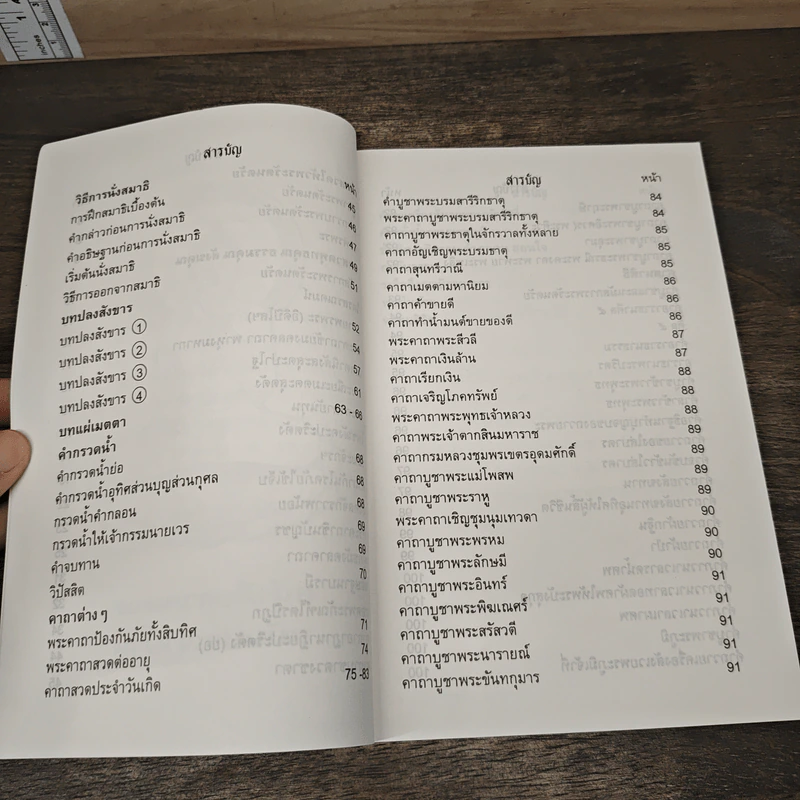 สารบัญ
หน้า
วิธีการนั่งสมาธิ
การฝึกสมาธิเบื้องต้น 45
คำกล่าวก่อนการนั่งสมาธิ 46
คำอธิษฐานก่อนการนั่งสมาธิ 47
เริ่มต้นนั่งสมาธิ 49
วิธีการออกจากสมาธิ 51
บทปลงสังขาร
บทปลงสังขาร ① 52
บทปลงสังขาร ② 54
บทปลงสังขาร ③ 57
บทปลงสังขาร ④ 61
บทแผ่เมตตา 63 - 66
คำกรวดน้ำ
คำกรวดน้ำย่อ 68
คำกรวดน้ำอุทิศส่วนบุญส่วนกุศล 68
กรวดน้ำคำกลอน 68
กรวดน้ำให้เจ้ากรรมนายเวร 69
คำจบทาน 69
วิปัสสิต 70
คาถาต่าง ๆ
พระคาถาป้องกันภัยทั้งสิบทิศ 71
พระคาถาสวดต่ออายุ 74
คาถาสวดประจำวันเกิด 75 -83
สารบัญ หน้า
คำบูชาพระบรมสารีริกธาตุ 84
พระคาถาบูชาพระบรมสารีริกธาตุ 84
คาถาบูชาพระธาตุในจักรวาลทั้งหลาย 85
คาถาอัญเชิญพระบรมธาตุ 85
คาถาสุนทรีวาณี 85
คาถาเมตตามหานิยม 86
คาถาค้าขายดี 86
คาถาทำน้ำมนต์ขายของดี 86
พระคาถาพระสีวลี 87
พระคาถาเงินล้าน 87
คาถาเรียกเงิน 88
คาถาเจริญโภคทรัพย์ 88
พระคาถาพระพุทธเจ้าหลวง 88
คาถาพระเจ้าตากสินมหาราช 89
คาถากรมหลวงชุมพรเขตรอุดมศักดิ์ 89
คาถาบูชาพระแม่โพสพ 89
คาถาบูชาพระราหู 89
พระคาถาเชิญชุมนุมเทวดา 90
คาถาบูชาพระพรหม 90
คาถาบูชาพระลักษมี 90
คาถาบูชาพระอินทร์ 91
คาถาบูชาพระพิฆเณศร์ 91
คาถาบูชาพระสรัสวดี 91
คาถาบูชาพระนารายณ์ 91
คาถาบูชาพระขันทกุมาร 91